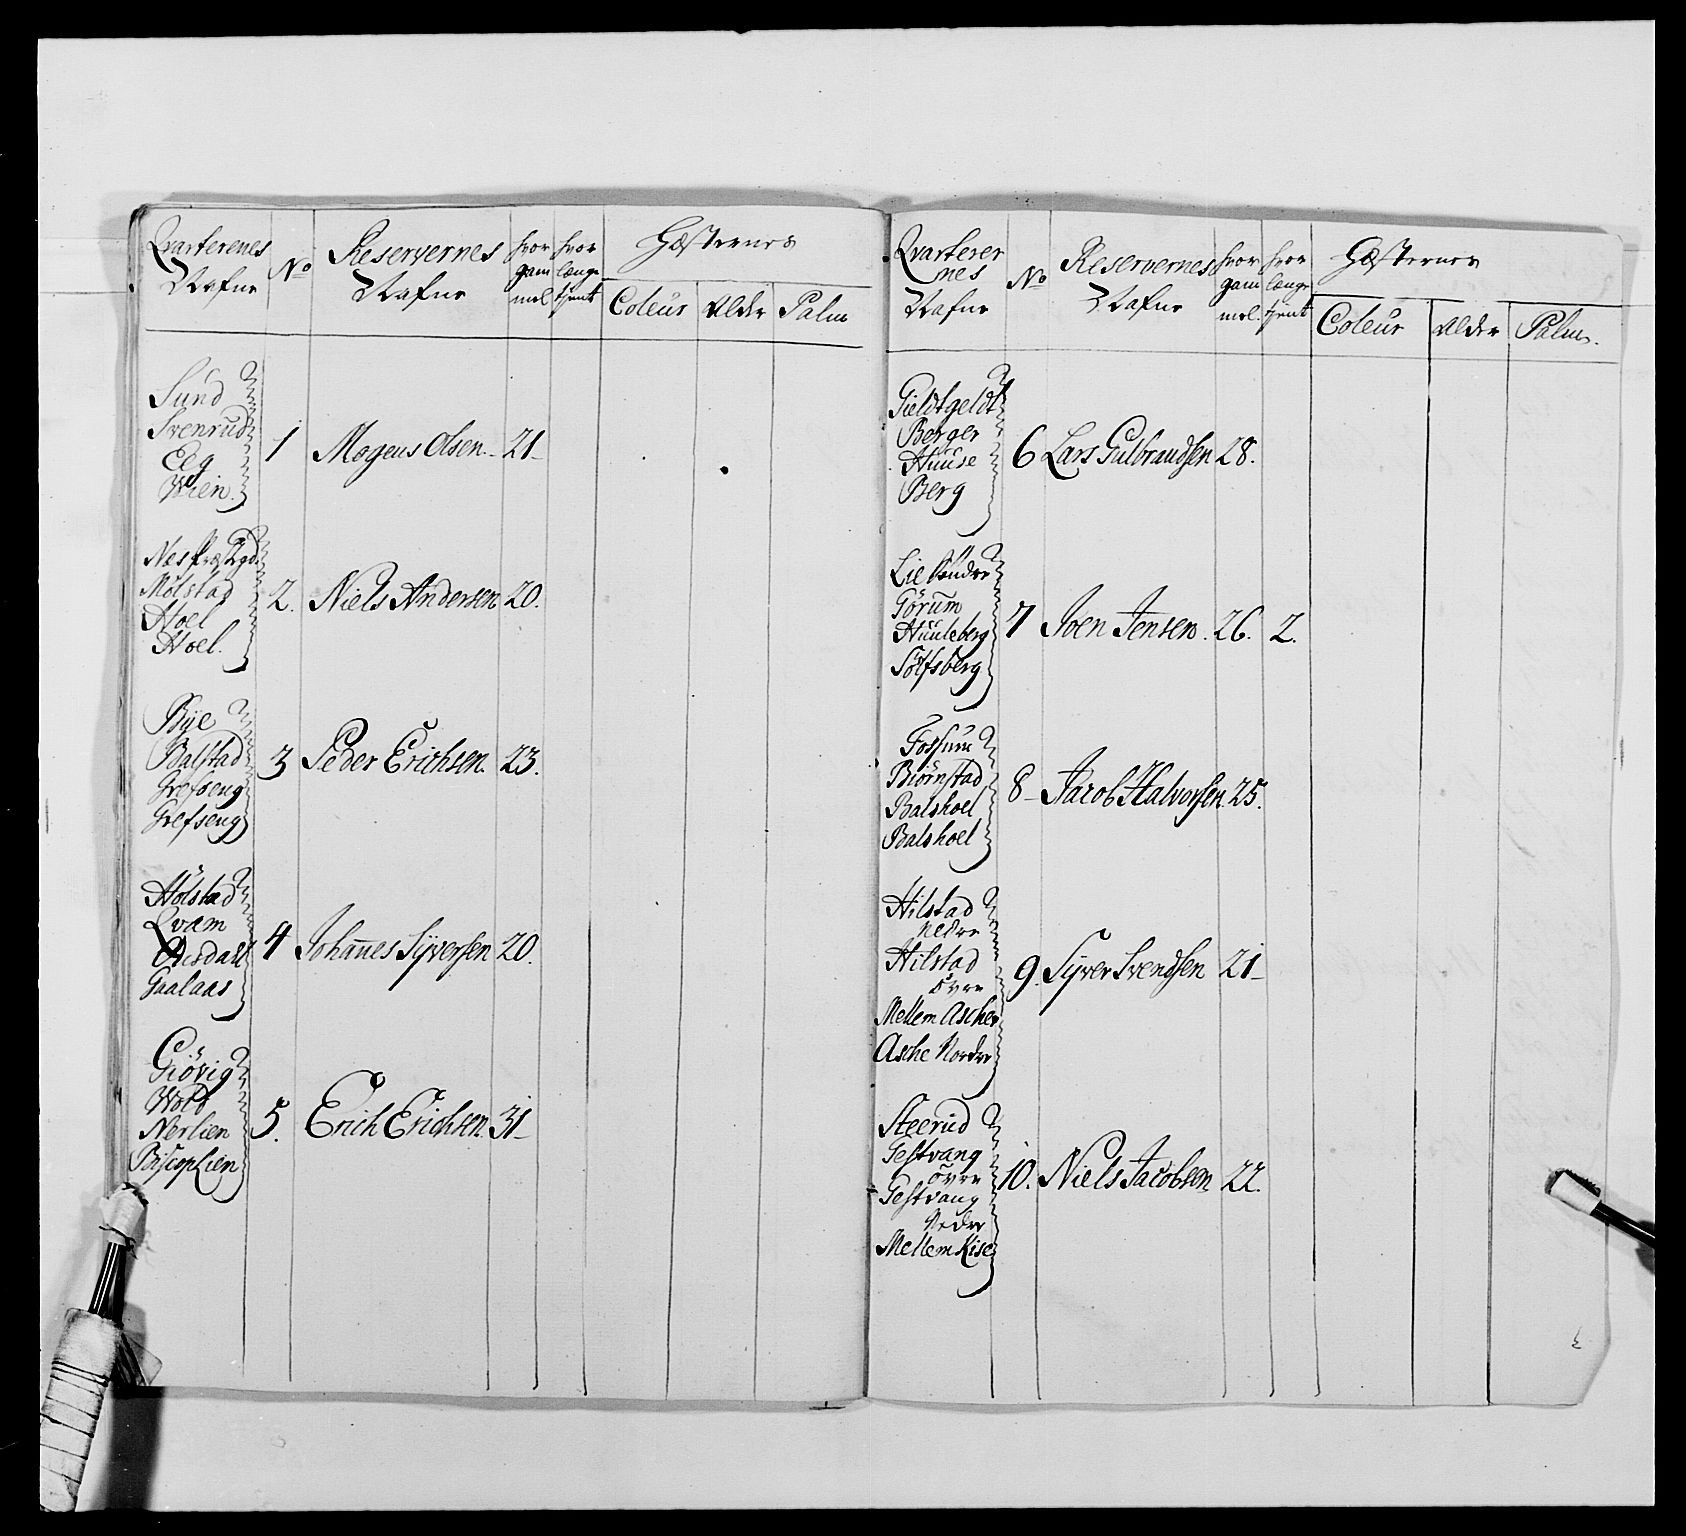 Qvarterenes Nafne
No
Reservernes Nafne
hvor gam mel
hvor længe tjent
Hæsternes
Coleur
Alder
Palm
Sund
Svenrud
Eeg
Wien
1 Mogens Olsen. 21
Næs Præstgd.
Mølstad
Hoel
Hoel.
2. Niels Andersen 20.
Bye
Balstad
Grefseng
Grefseng
3 Peder Erichsen. 23.
Holstad
Qvam
Gaalaas
4 Johannes Syversen 20.
Giövig
Wold
Nerlien
BiscopLien
5. Erich Erichsen. 31
Qvarterer nes Nafne
No
Reservernes Nafne
hvor gam mel.
hvor længe tjent
Hæsternes
Coleur
Alder
Palm.
Gieldtgeldt
Berger
Huuse
Berg
6 Lars Gulbrandsen 28.
Lie Søndre
Görum
Huuleberg
Sölfsberg
7 Joen Jensen. 26. 2.
Fossum
Biörnstad
Balshoel
Balshoel
8 Jacob Halvorsen. 25.
Hilstad
nedre
Hilstad
övre
Mellem Ascher
Asche Nordre
9. Syver Svendsen 21
Steerud
Gestvang
övre
Gestvang
Nedre
Mellem Kise
10. Niels Jacobsen 22.